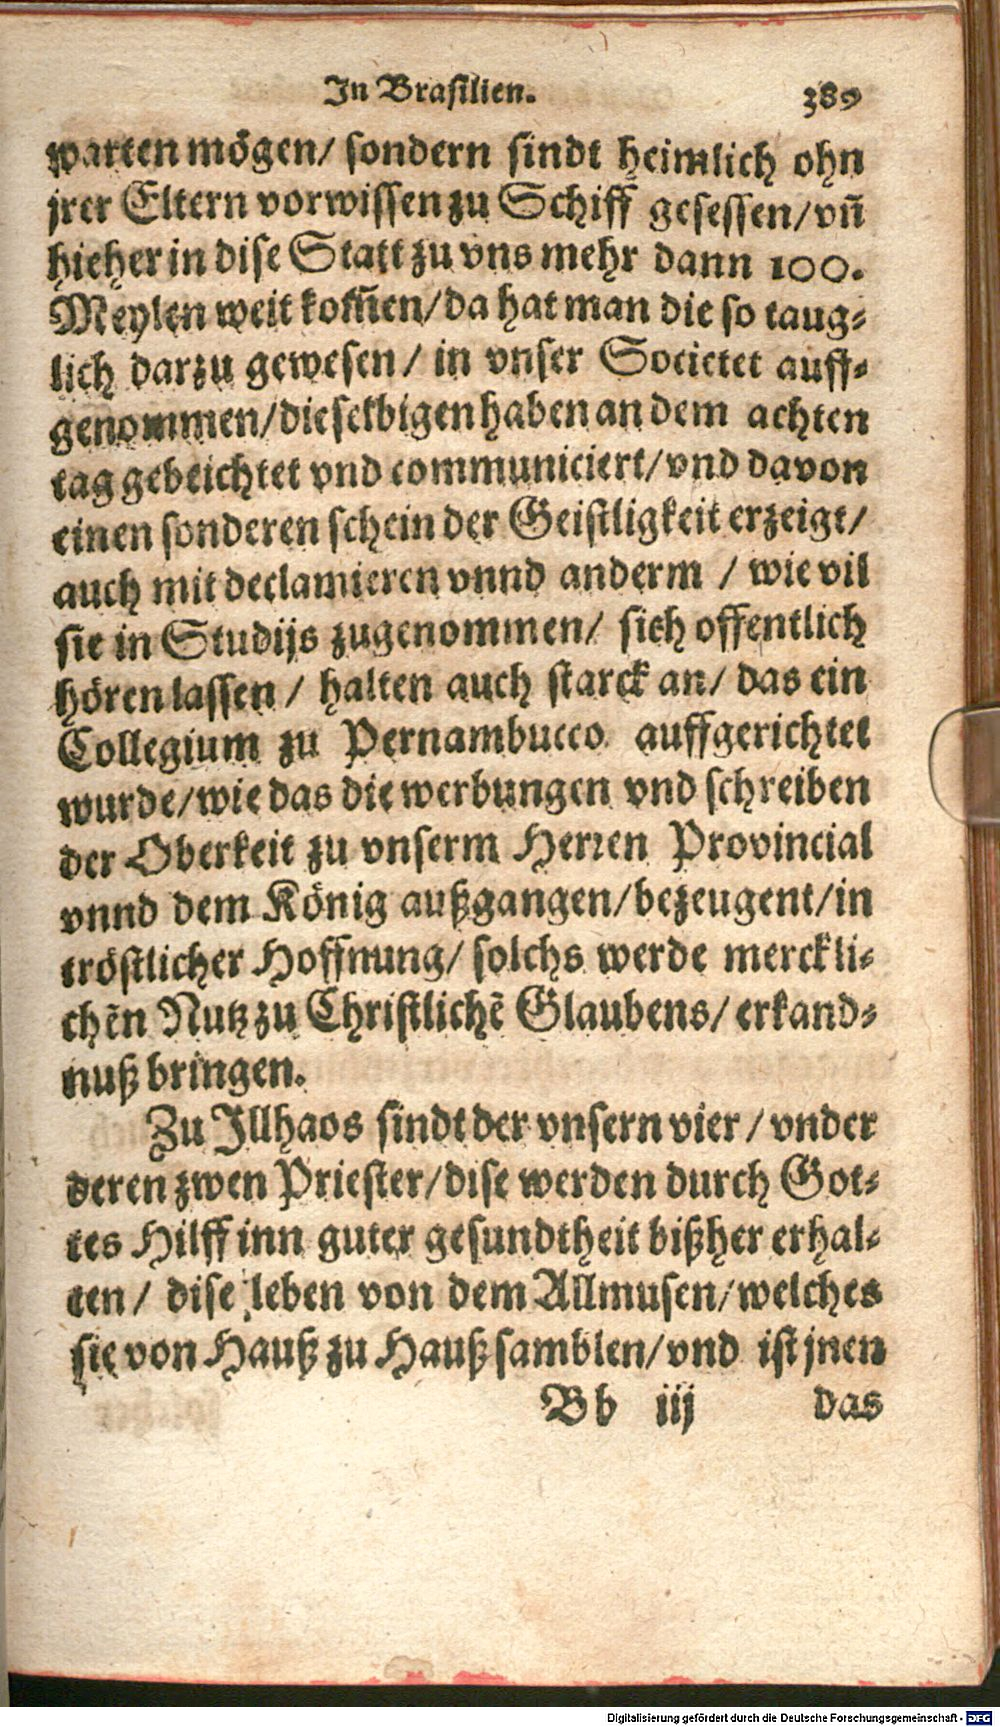 In Brasilien. 389
warten mögen/ sondern sindt heimlich ohn
jrer Eltern vorwissen zu Schiff gesessen/ vn̄
hieher in dise Statt zu vns mehr dann 100.
Meylen weit kom̄en/ da hat man die so taug-
lich darzu gewesen/ in vnser Societet auff-
genommen/ dieselbigen haben an dem achten
tag gebeichtet vnd communiciert/ vnd davon
einen sonderen schein der Geistligkeit erzeigt/
auch mit declamieren vnnd anderm / wie vil
sie in Studijs zugenommen/ sich offentlich
hören lassen / halten auch starck an/ das ein
Collegium zu Pernambucco auffgerichtet
wurde/ wie das die werbungen vnd schreiben
der Oberkeit zu vnserm Herren Provincial
vnnd dem König außgangen/ bezeugent/ in
tröstlicher Hoffnung/ solchs werde merckli-
chẽn Nutz zu Christlichẽ Glaubens/ erkand-
nuß bringen.
Zu Illhaos sindt der vnsern vier / vnder
deren zwen Priester/ dise werden durch Got-
tes Hilff inn guter gesundtheit bißher erhal-
ten / dise leben von dem Allmusen/ welches
sie von Hauß zu Hauß samblen/ vnd ist jnen
Bb iij das
Digitalisierung gefördert durch die Deutsche Forschungsgemeinschaft - DFG